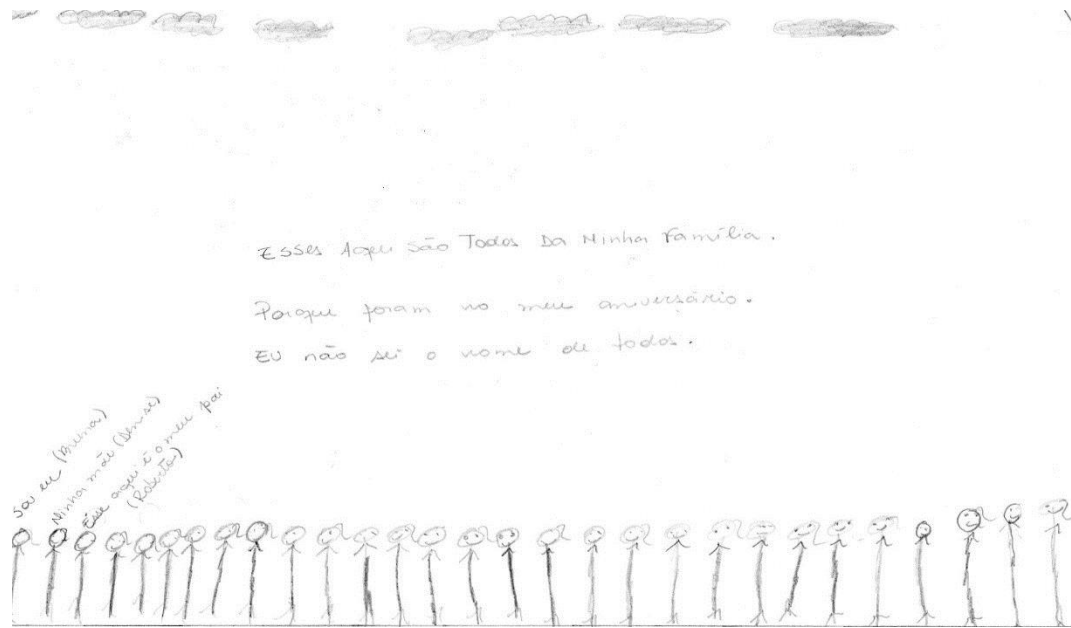 Esses Aqui São Todos Da Minha Família.
Porque foram no meu aniversário.
EU não sei o nome de todos.
Sou eu (Bruna)
Minha mãe (Denise)
Esse aqui é o meu pai
(Roberto)